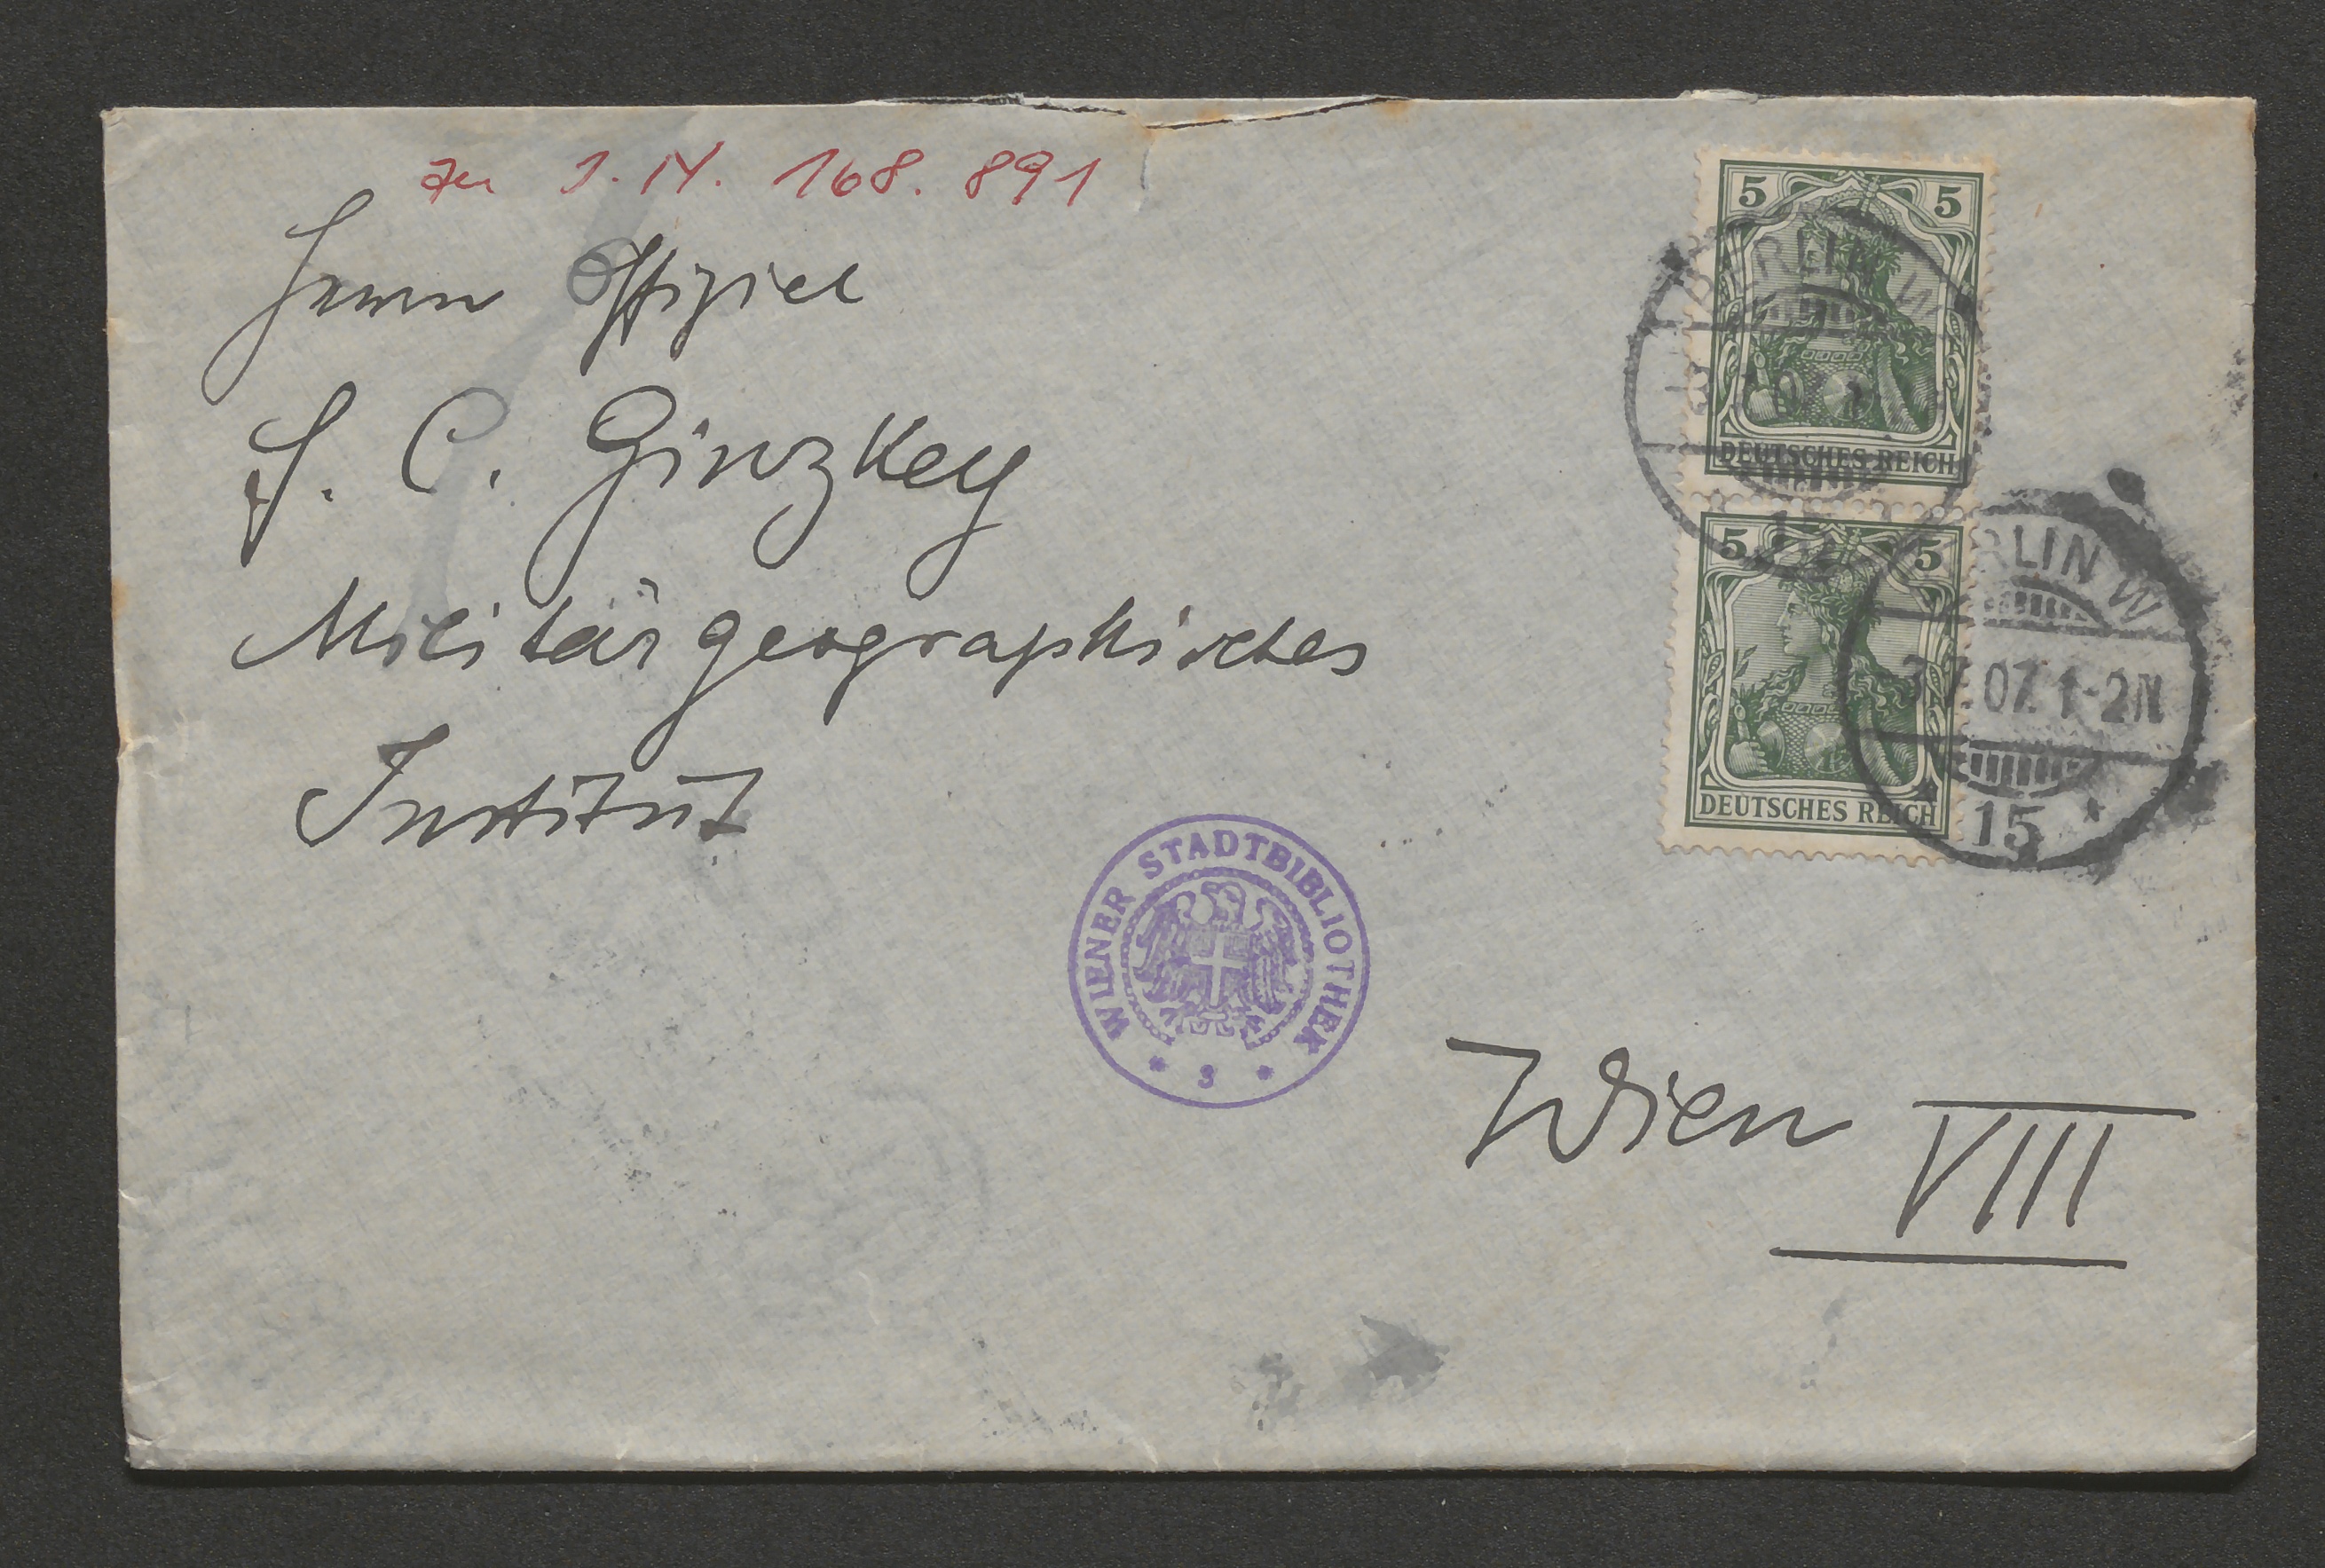 zu I.N. 168.891
Herrn Offizial
F. C. Ginzkey
Militärgeographisches
Institut
Wien VIII
5 5
DEUTSCHES REICH
5 5
DEUTSCHES REICH
BERLIN W
15
BERLIN W
3.7.07. 1-2N
* 15 *
WIENER STADTBIBLIOTHEK
* 3 *